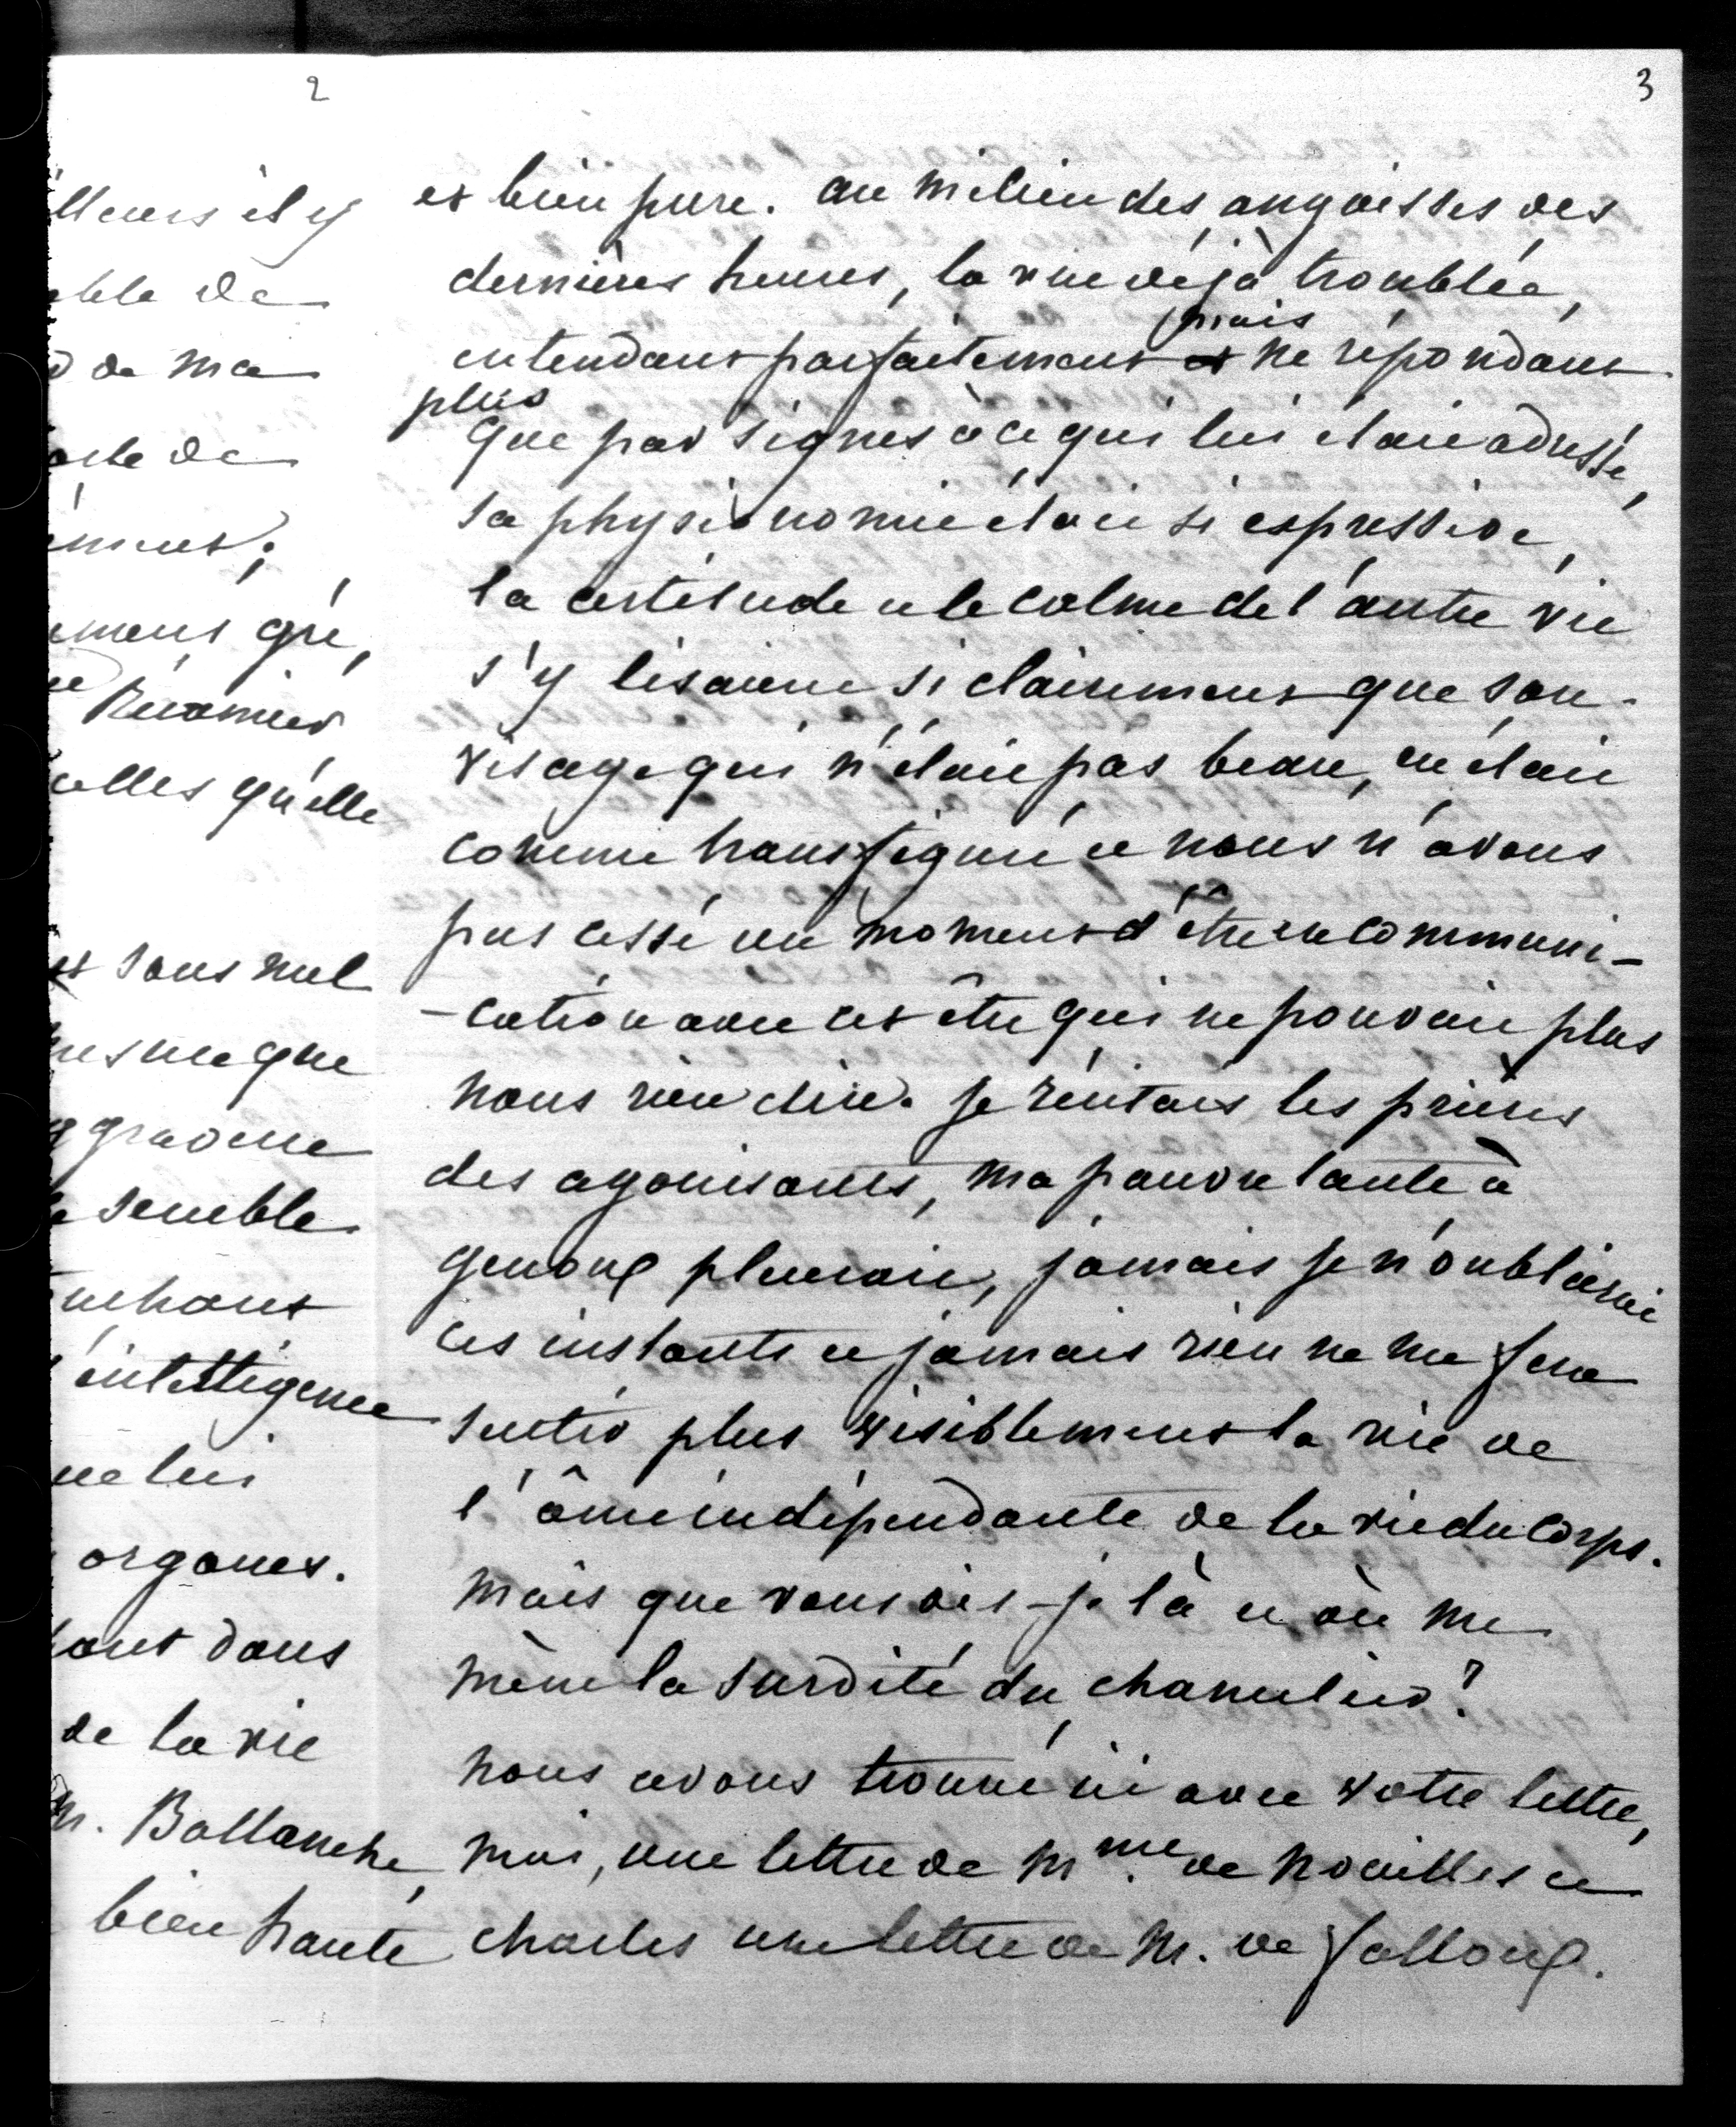 2
lleurs il y
able de
d de ma
orte de
ément;
ement que,
Récamier
celles qu'elle
et sans nul
presque que
gravure
semble
touchant
intelligence
que lui
organes.
tout dans
de la vie
M. Ballanche,
bien haute
3
et bien pure. au milieu des angoisses des
dernières heures, la vue déjà troublée,
mais
entendant parfaitement et ne répondant
plus
que par signes à ce qui lui était adressé,
sa physionomie était si expressive,
la certitude et le calme de l'autre vie
s'y lisaient si clairement que son
visage qui n'était pas beau, en était
comme transfiguré et nous n'avons
pas cessé un moment d'être en communi-
-cation avec cet être qui ne pouvait plus
nous rien dire. je récitais les prières
des agonisants, ma pauvre tante à
genoux pleurait, jamais je n'oublierai
ces instants et jamais rien ne me fera
sentir plus visiblement la vie de
l'âme indépendante de la vie du corps.
mais que vous dis-je là et où me
mène la surdité du chancelier?
nous avons trouvé ici avec votre lettre,
moi, une lettre de Mme. de Noailles et
charles une lettre de M. de falloux.